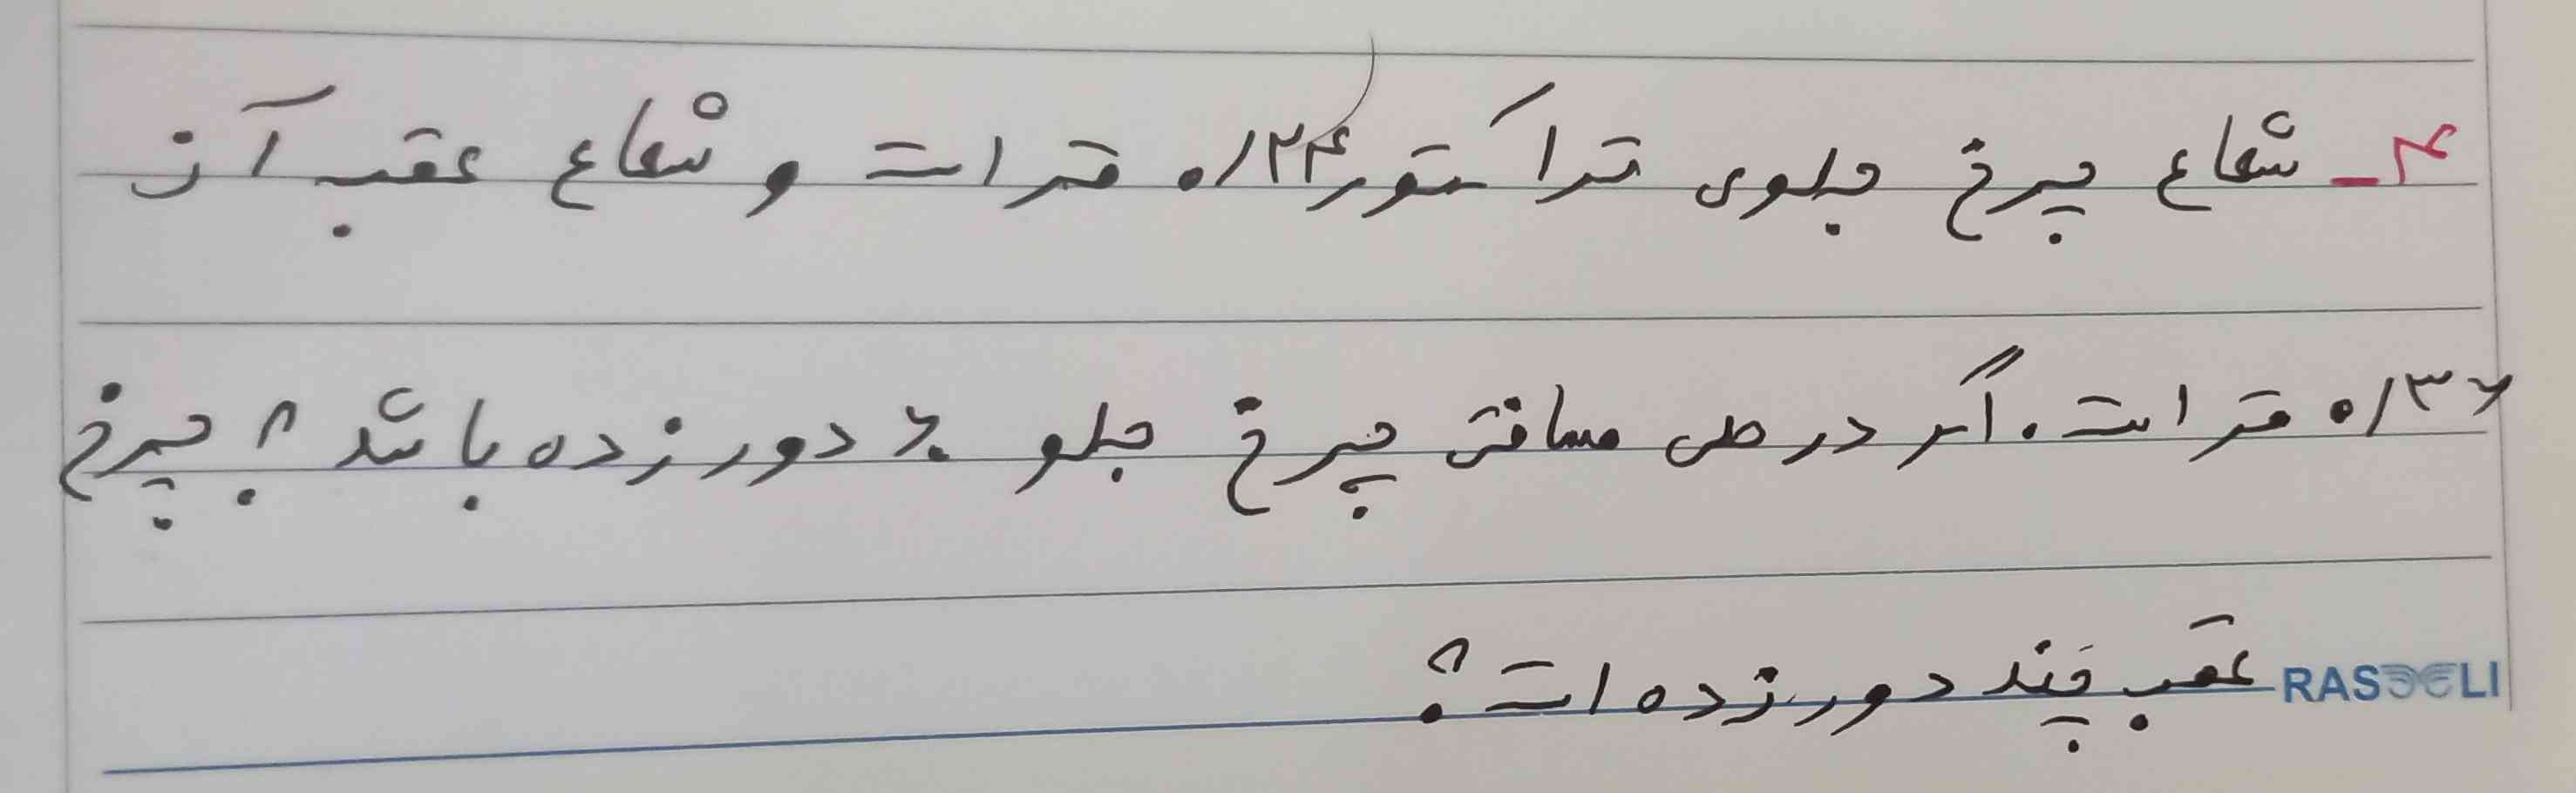 ۴- شعاع چرخ جلوی تراکتور ۰/۲۴ متر است و شعاع عقب آن
۰/۳۶ متر است. اگر در طی مسافتی چرخ جلو ۶۰ دور زده باشد؟ چرخ
عقب چند دور زده است؟
RASOOLI